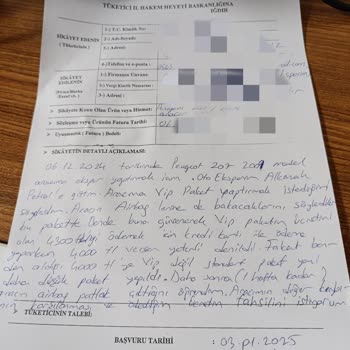 TÜKETİCİ İL HAKEM HEYETİ BAŞKANLIĞINA
IĞDIR
ŞİKAYET EDENİN
(Tüketicinin)
1-) T.C. Kimlik No:
2-) Adı-Soyadı
3-) Adresi
4-) Telefon ve e-posta :
ŞİKAYET
EDİLENİN
1-) Firmanın Unvanı
2-) Vergi Kimlik Numarası :
3-) Adresi :
➤ Şikâyete Konu Olan Ürün veya Hizmet:
➤ Sözleşme veya Ürünün Fatura Tarihi:
➤ Uyuşmazlık / Fatura / Bedeli:
➤ ŞİKAYETİN DETAYLI AÇIKLAMASI:
06.12.2024 tarihinde Peugeot 207 2009 model
aracıma eksper yaptırmak için Oto Eksperim
Petrol'e gittim. Aracıma Vip Paket yaptırmak istediğimi
söyledim. Aracın Airbag'lerine de bakacaklarını söylediler
bu pakette bende buna güvenerek Vip paketin ücretini
olan 4300 ödemek için kredi kartı ile ödeme
yaparken 4000 tl ve yeterli denildi. Fakat ben
4000 tl'ye Vip değil standart paket yani
daha düşük paket yapıldı. Daha sonra (1 hafta kadar)
aracın airbag patlak çıktığını öğrendim. Aracımın değer
karşılanması ve ödediğim ücretin tahsilini istiyorum
TÜKETİCİNİN TALEBİ:
BAŞVURU TARİHİ : 03.01.2025